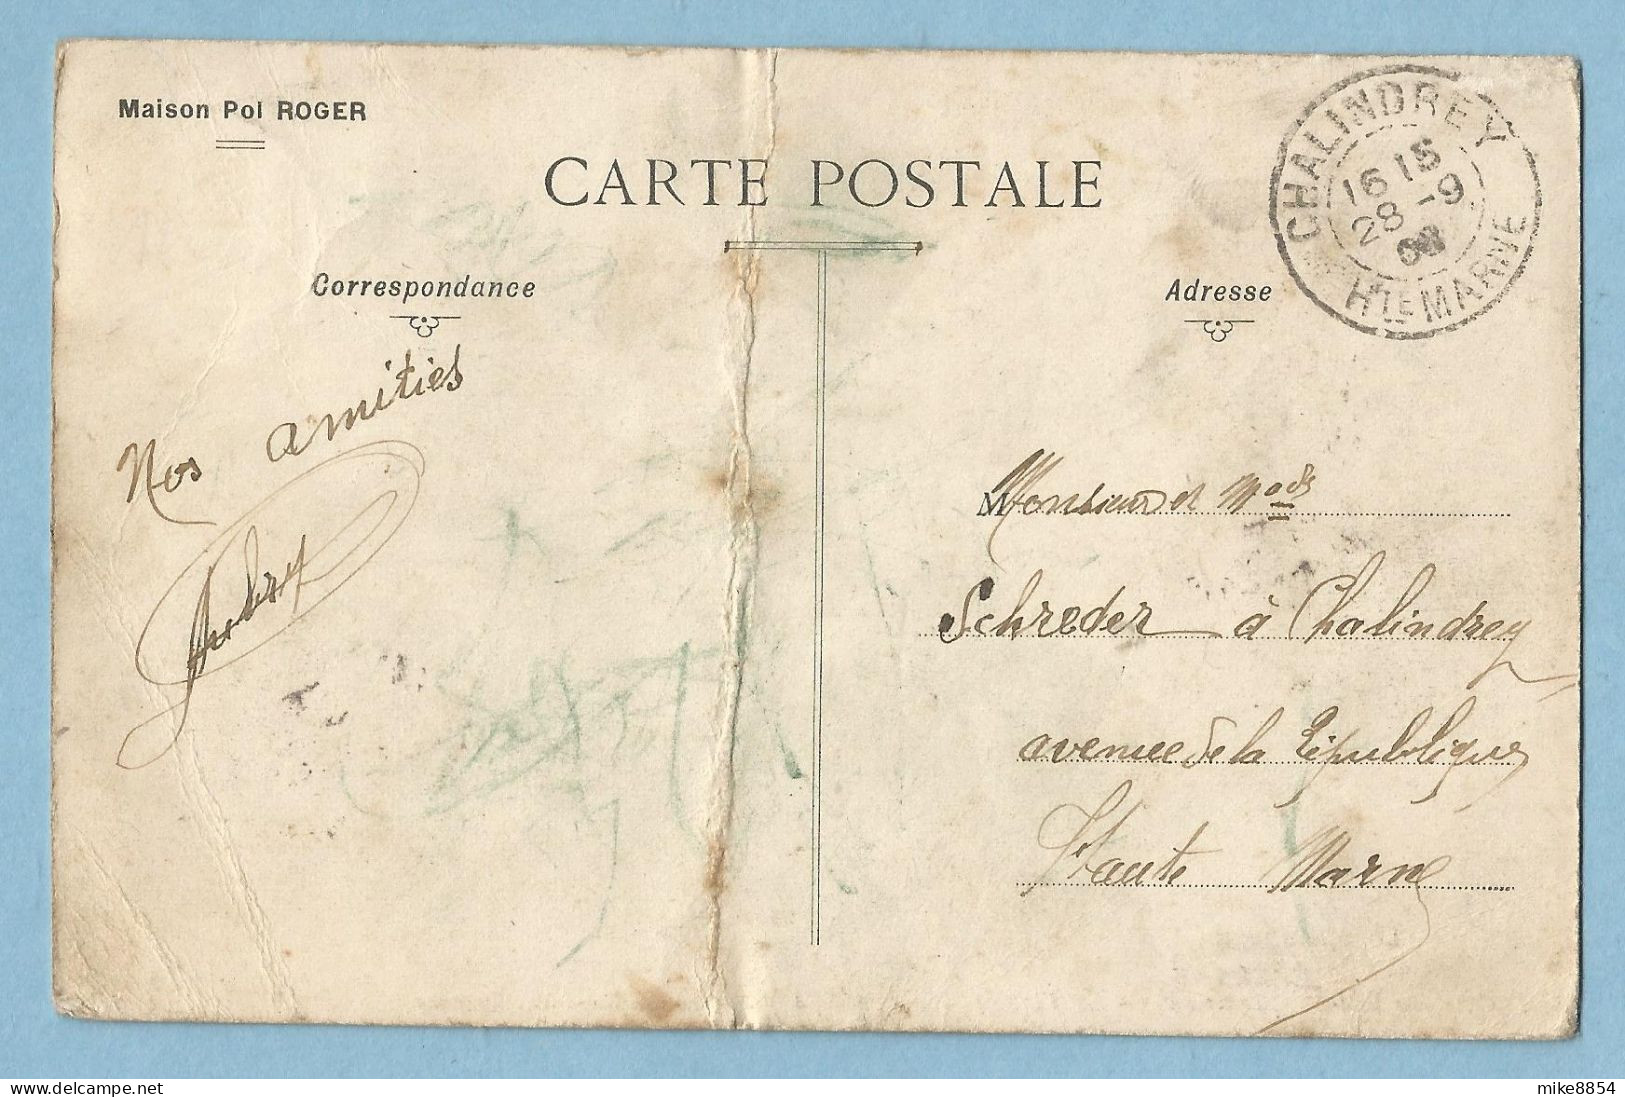 Maison Pol ROGER
CARTE POSTALE
Correspondance
Adresse
CHALINDREY
16 15
28 -9
08
HTE MARNE
Nos amitiés
Aubert
Monsieur et Mads
Schreder à Chalindrey
avenue de la République
Haute Marne
mike8854